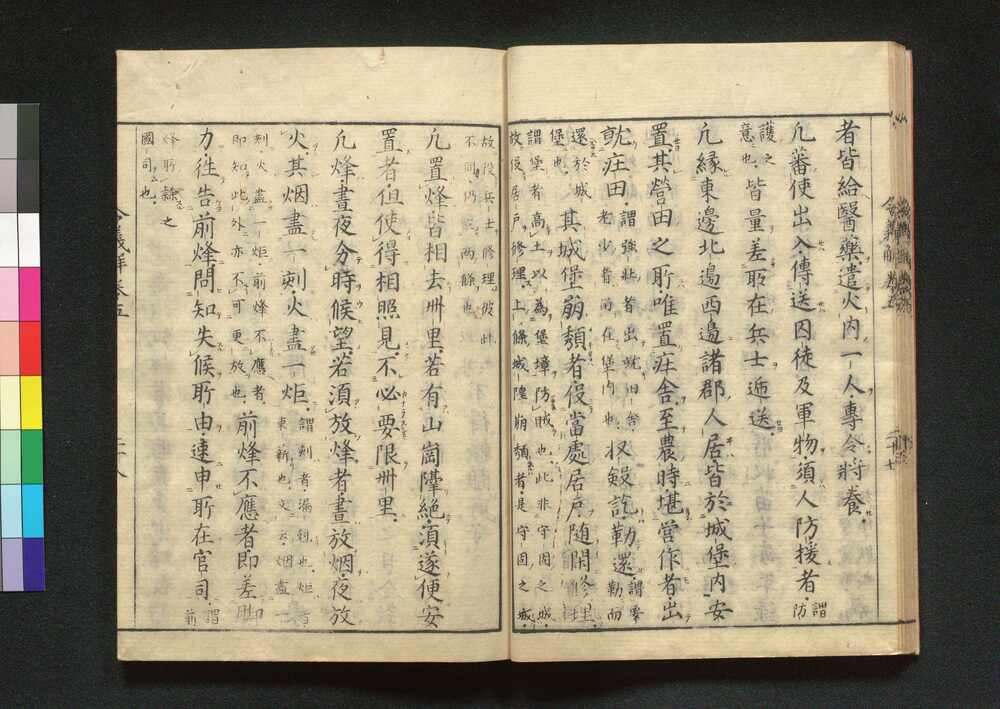 者皆給醫藥遣火内一人專令將養
凢蕃使出入傳送囚徒及軍物須人防援者謂防
護之
意也皆量差所在兵士逓送
凢縁東邊北邊西邊諸郡人居皆於城堡内安
置其營田之所唯置庄舎至農時堪營作者出
就庄田謂強壯者出就田舎
老少者留在堡内也収斂訖勒還謂勒而
還於城
堡也其城堡崩頽者役當處居戸随閑修理
謂堡者高土以為堡壔防賊也此非守固之城
故役居戸修理上條城隍崩頽者是守固之城
故役兵士修理彼此
不同仍両條也
凢置烽皆相去卌里若有山崗隔絶湏遂便安
置者但使得相照見不必要限卌里
凢烽晝夜分時候望若湏放烽者晝放烟夜放
火其烟盡一刻火盡一炬謂刻者漏刻也炬者
束薪也文云烟盡一
刻火盡一炬前烽不應者
即知此外亦不可更放也前烽不應者即差脚
力徃告前烽問知失候所由速申所在官司謂
前
烽所隸之
國司也
令義解巻五
二十七